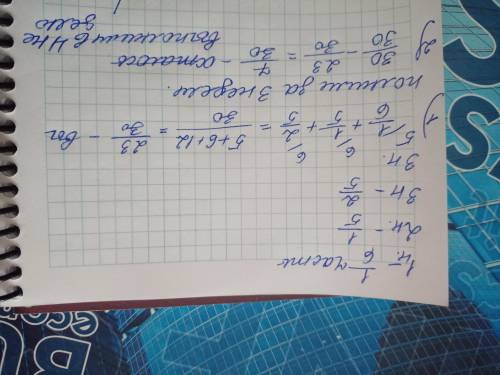 1н - 1/6 часть
2н. - 1/5
3н - 2/5
3н.
1) 1/6 + 1/5 + 2/5 = 5+6+12/30 = 23/30 - вы
полнили за 3 недели.
2) 30/30 - 23/30 = 7/30 - осталось
выполнить в 4 не
делю